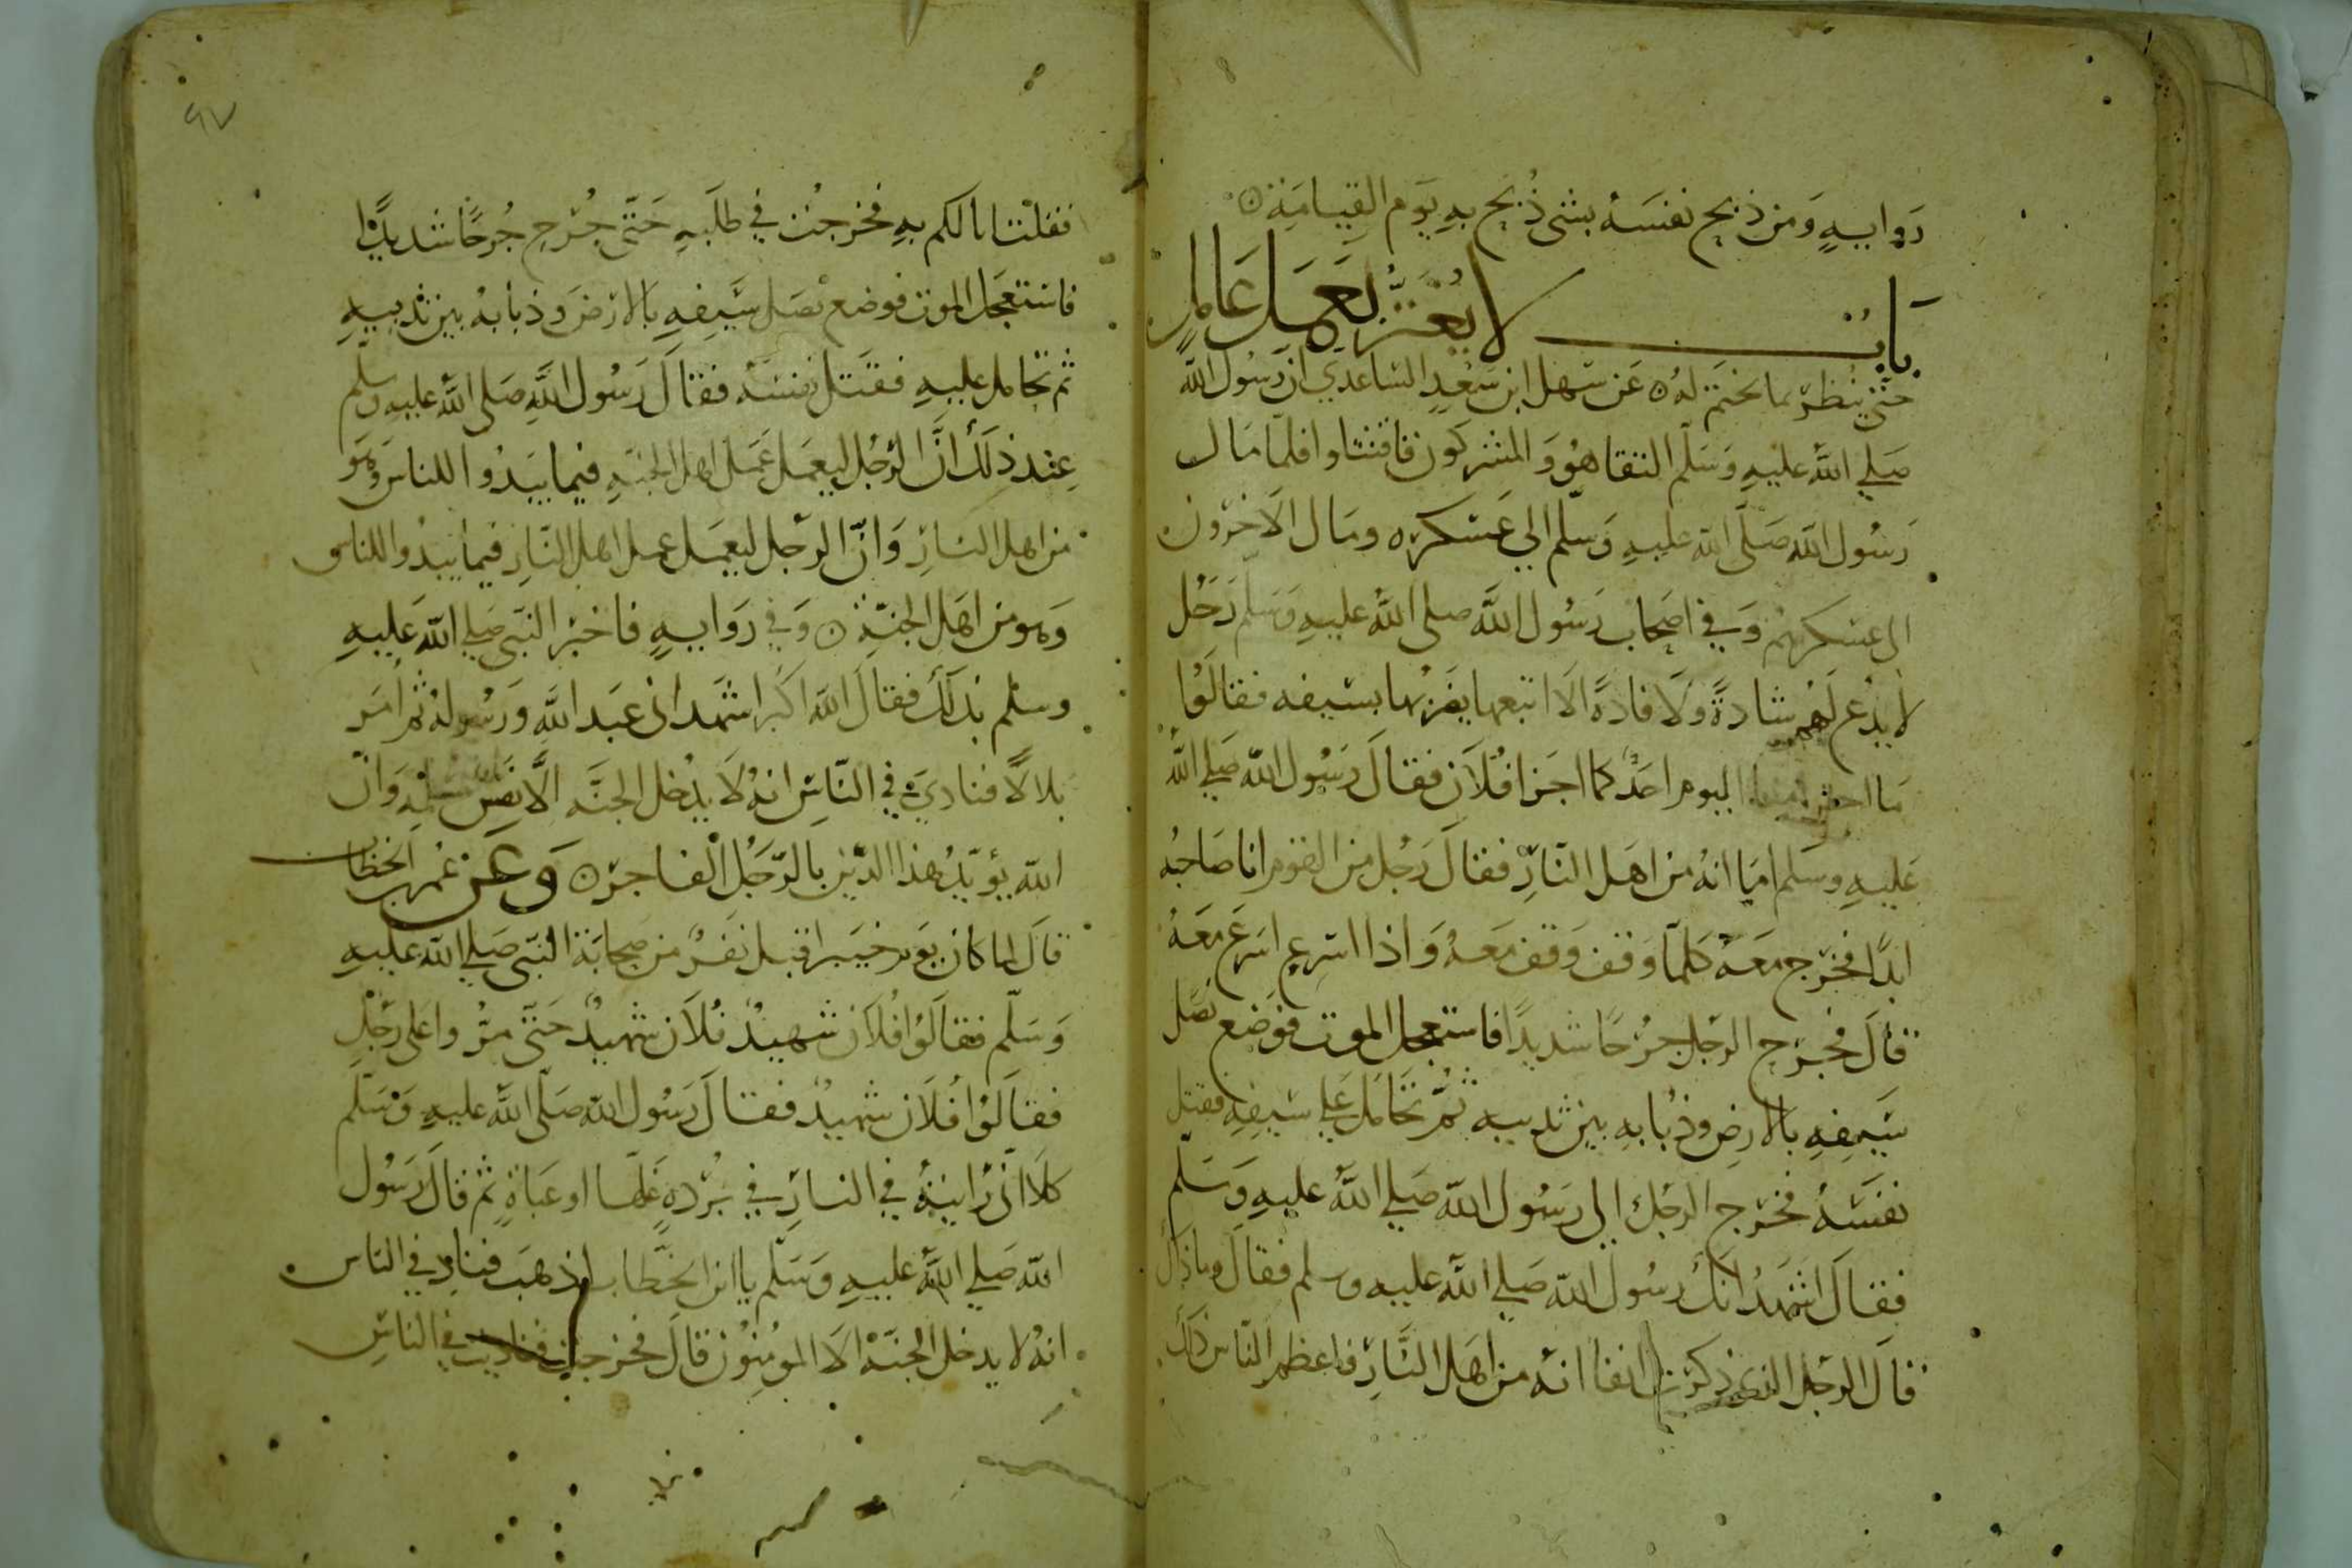 رَوايةٍ وَمن ذبح نفسَهُ بشى ذُبح بهِ يَوم القِيامَةِ
بابٌ لا يُغتَرُّ لعَمَل عَامِلٍ
حَتّى يُنظرَ بما يختَم لهُ عَن سَهل ابن سَعْدٍ السَّاعدي ان رَسُول الله
صَلي الله عليهِ وَسَلّم التقا هُوَ وَالمشركون فاقتتلوا فلمّا مَال
رَسُول الله صَلّى الله عليهِ وَسَلّم الى عَسْكره ومَال الآخرون
الى عسكرهم وَفي اصحاب رَسُول الله صلى الله عليهِ وَسَلّم رَجُل
لا يدَع لَهُم شادةً ولا فادةً الا اتبعها يضربها بسَيفه فقالوُا
مَا اليوم احَدٌ كما اجزا فُلاَن فقالَ رَسُول الله صَلي الله
عَليهِ وسَلم امَا انهُ من اهَل النَّارِ فقالَ رَجُل من القوم انا صَاحبُه
ابدًا فخرَج مَعَهُ كلمّا وَقف وَقف مَعَهُ وَاذا اسَرع اسَرعَ مَعَهُ
قالَ فجرَح الرجل جرُحًا شديدًا فاستعجل الموت فوَضع نصَل
سَيفِهِ بالارضِ وذُبابهِ بين ثدييه ثُمّ تحَامَل عَلي سَيفِهِ فقتل
نفسَهُ فخرَج الرجل الى رَسُول الله صَلي الله عليهِ وَسَلّم
فقالَ اشهَدُ انكَ رسُول الله صَلي الله عليه وسلم فقالَ وماذاك
قال الرجل الذي ذكرت انفا انه من اهَل النَّارِ فاعظم الناس ذلك
٩٧
فقلت انا لكم بهِ فخرجْت في طلَبهِ حَتّى جُرح جُرحًا شديدًا
فاستعجَل الموت فوضع نصَل سَيفِهِ بالارض وَذبابهُ بين ثدييهِ
ثم تحامل عليهِ فقتَل نفسَهُ فقالَ رَسُول اللهِ صَلى الله عليهِ وسلم
عِند ذلكَ انَّ الرّجُل ليعمَل عَمَل اهل الجنّهِ فيما يَبدُوا للناس وَهوَ
من اهل النارِ وَانّ الرّجل ليعمَل عمل اهل النَّارِ فيما يبدُوا للناس
وَهو من اهَل الجنّةِ وَفي رَوايةٍ فاخبرَ النبّى صَلي الله عَليهِ
وسلم بذلكَ فقالَ الله اكبَر اشهَد انى عَبد الله وَرَسُولهُ ثم امَر
بلالاً فنادَي في النّاس انهُ لاَ يدُخل الجنَّه الاّ نفسٌ مسلمه وَانّ
الله يؤيّدُ هذا الدّين بالرّجُل الفاجرِ وَعَن عُمر بن الخطاب
قالَ لما كان يَوم خيَبر اقبل نَفَرٌ من صحابَة النبّى صَلي الله عليهِ
وَسَلّم فقالَوُا فُلاَن شهيدٌ فُلاَن شهيدٌ حَتّى مرُّوا علَى رَجُلٍ
فقالَوُا فُلاَن شهيدٌ فقالَ رَسُول الله صَلّى الله عليهِ وَسَلّم
كلاَ انّى رَايتهُ في النارِ في بُرْدهٍ غَلّها او عَباةٍ ثم قالَ رَسُول
الله صَلي الله عليهِ وَسَلّم يا ابن الخَطَّاب اذهبَ فنادِ في الناس
انهُ لا يدخل الجنّة الاَ المؤمِنوُن قالَ فخرجت فناديت في الناس